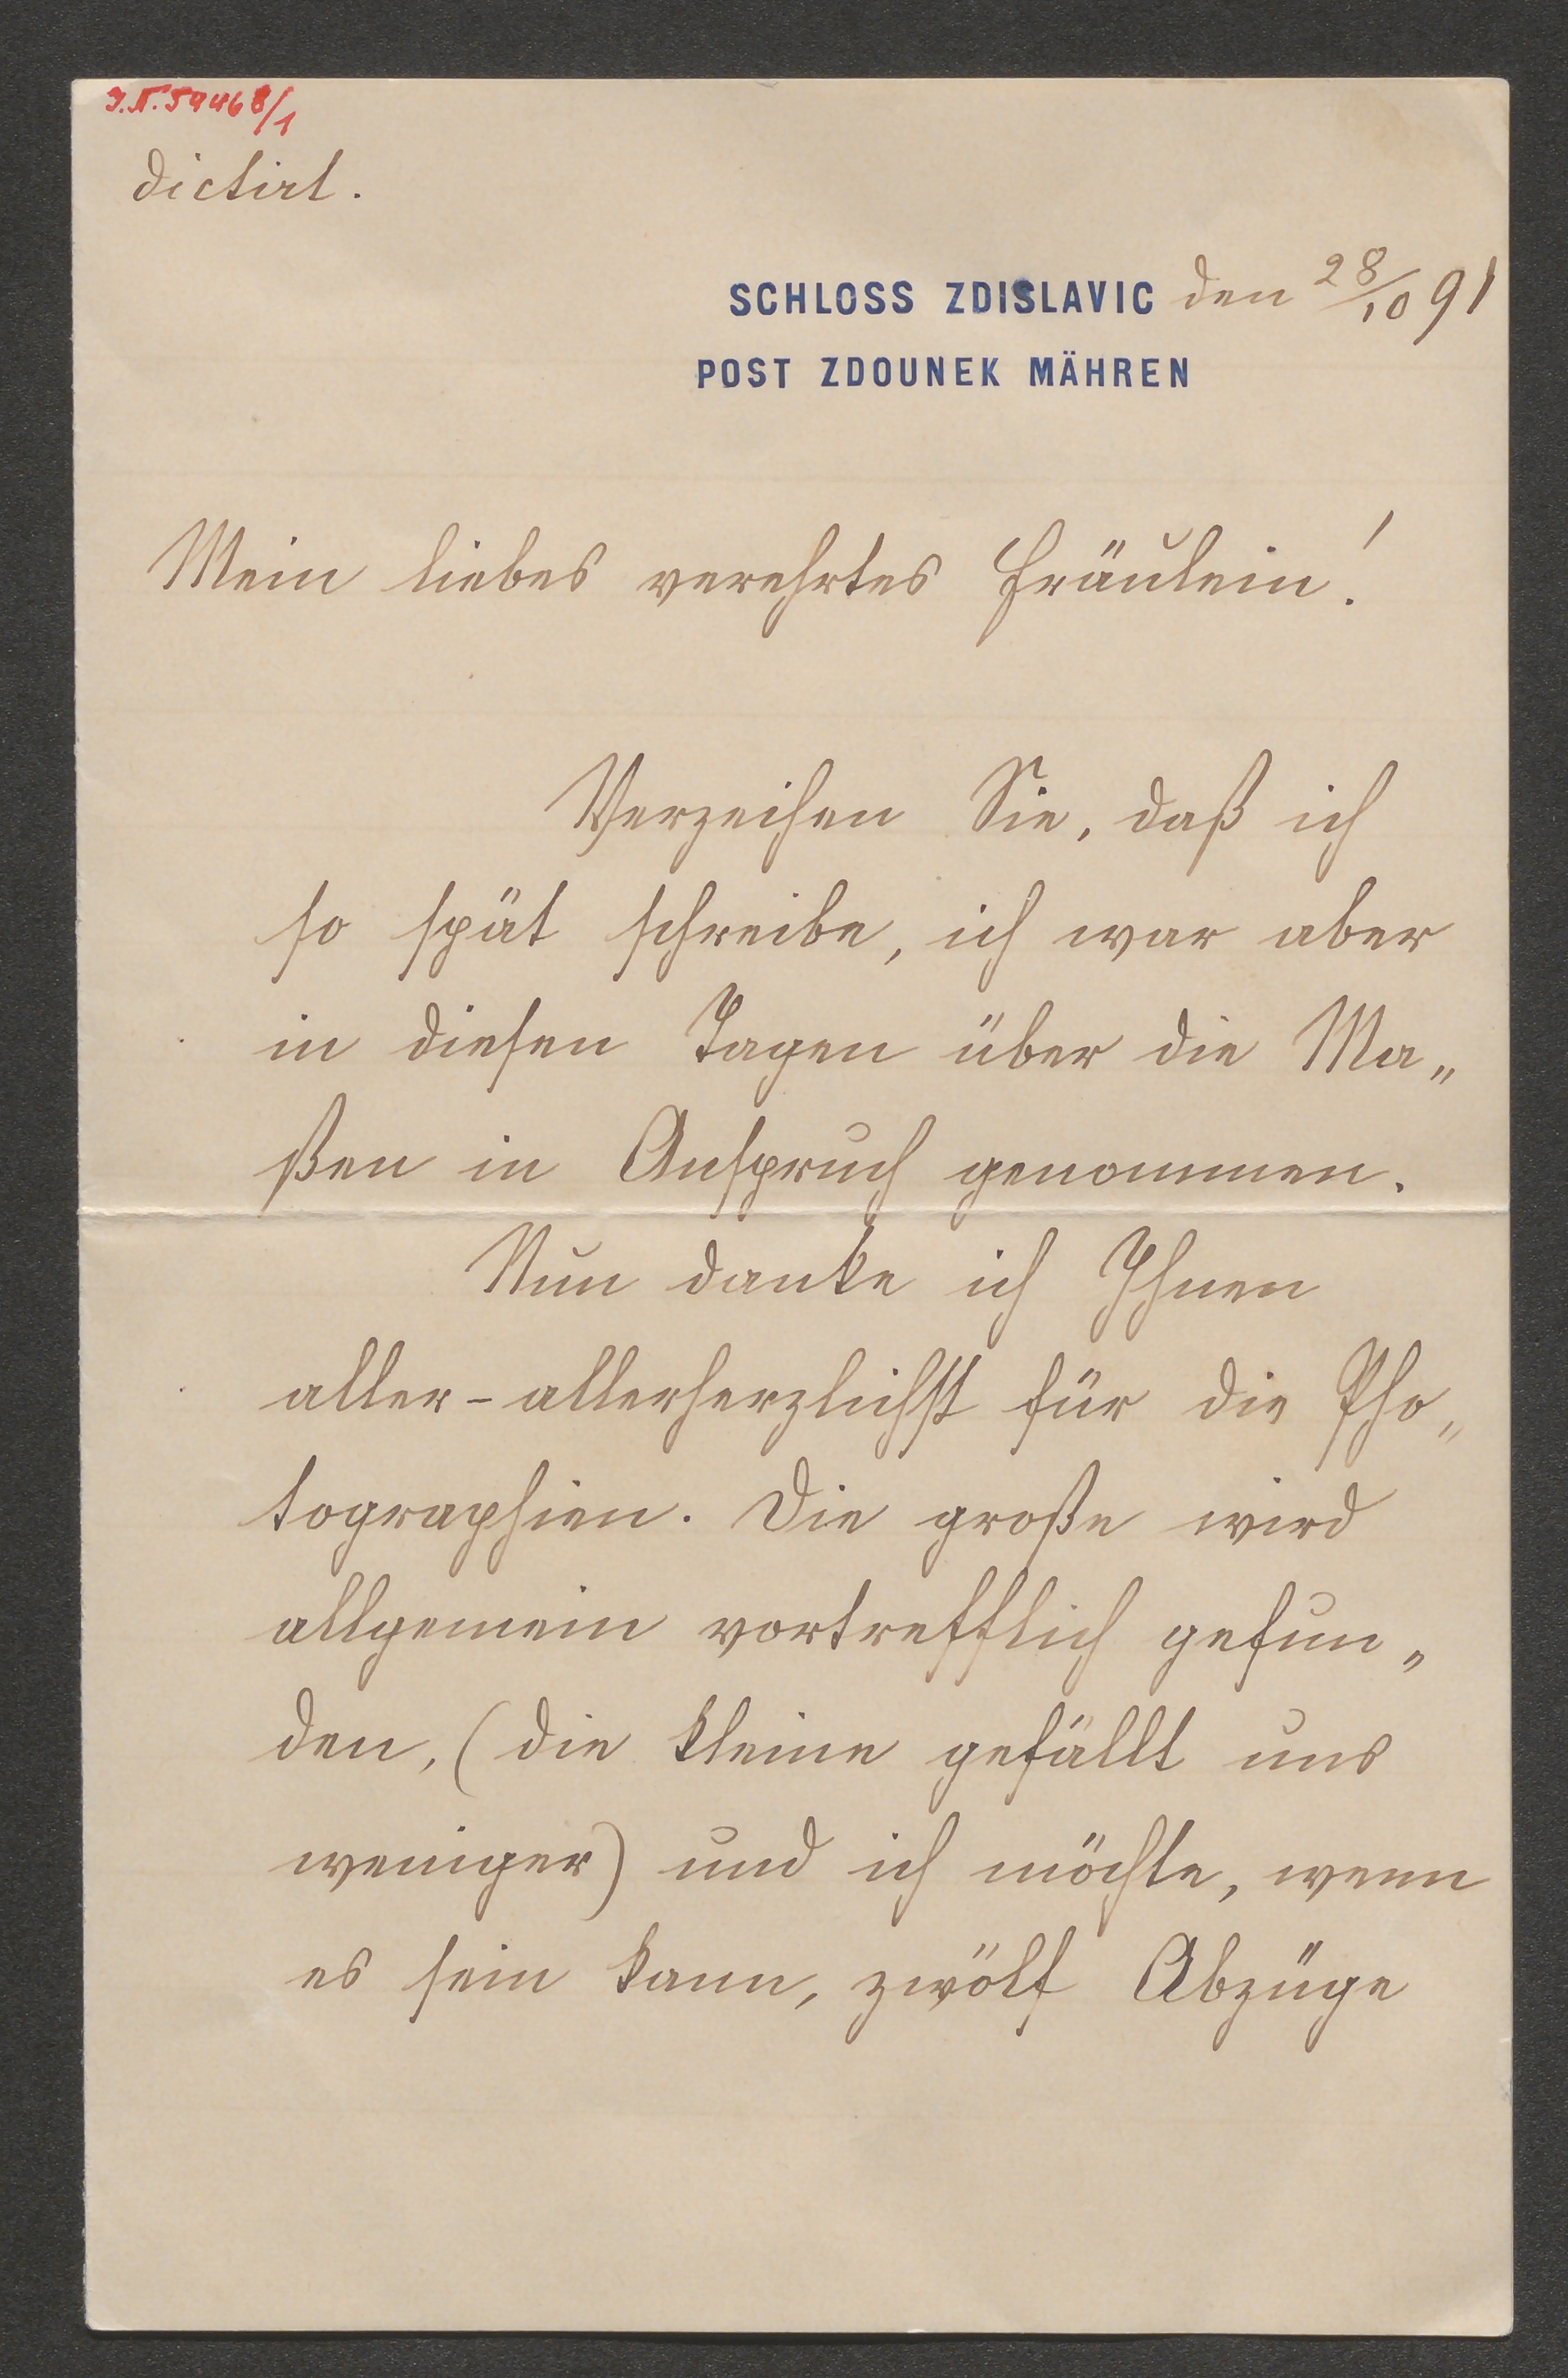 I.N. 59468/1
dictirt.
SCHLOSS ZDISLAVIC den 28/10 91
POST ZDOUNEK MÄHREN
Mein liebes verehrtes Fräulein!
Verzeihen Sie, daß ich
so spät schreibe, ich war aber
in diesen Tagen über die Ma„
ßen in Anspruch genommen.
Nun danke ich Ihnen
aller-allerherzlichst für die Pho„
tographien. Die große wird
allgemein vortrefflich gefun„
den, (die kleine gefällt uns
weniger) und ich möchte, wenn
es sein kann, zwölf Abzüge